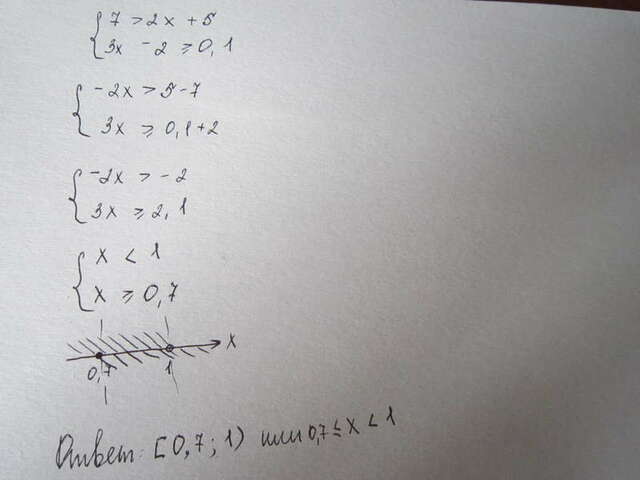 7 > 2x + 5
3x - 2 ≥ 0,1
-2x > 5-7
3x ≥ 0,1+2
-2x > -2
3x ≥ 2,1
x < 1
x ≥ 0,7
x
0,7 1
Ответ: [0,7; 1) или 0,7 ≤ x < 1